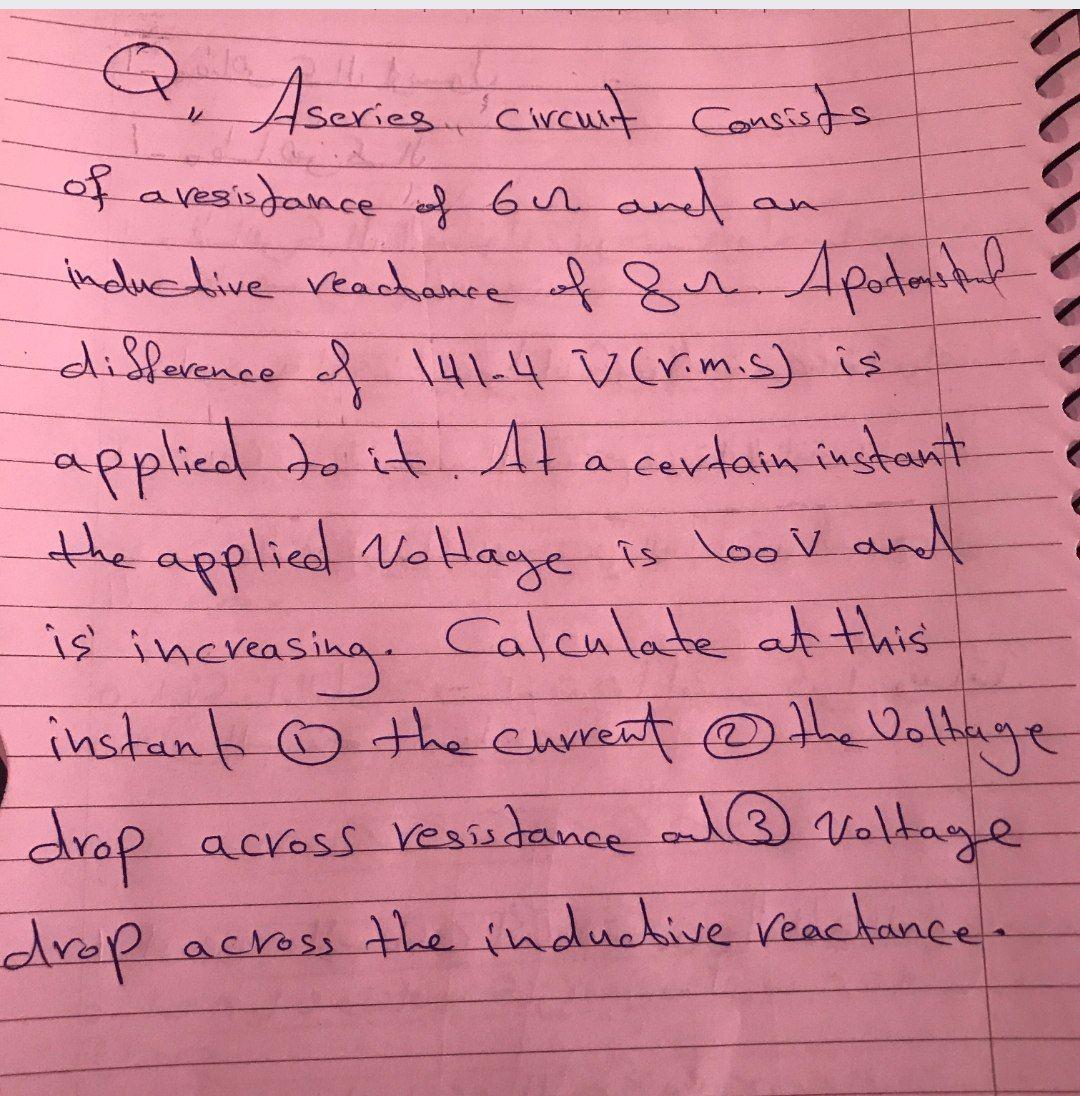 Q,, A series circuit consists
of a resistance of 6Ω and an
inductive reactance of 8Ω. A potenstial
difference of 141.4 V (r.m.s) is
applied to it. At a certain instant
the applied Voltage is 100 V and
is increasing. Calculate at this
instant ① the current ② the Voltage
drop across resistance and ③ Voltage
drop across the inductive reactance.